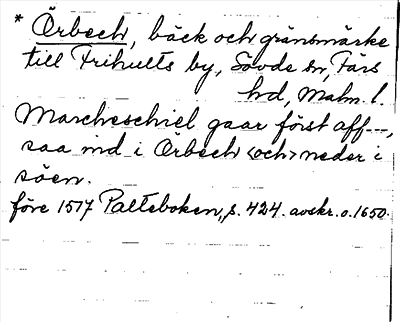 * Örbech, bäck och gränsmärke
till Frihults by, Sövde sn, Färs
hd, Malm. l.
Marcheschiel gaar först aff---,
saa nid i Örbech <och> neder i
söen.
före 1517 Palteboken, s. 424. avskr. o. 1650.